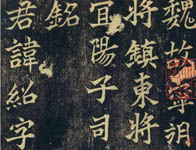 魏故寧朔
將鎮東將
宜陽子司
銘
君諱紹字